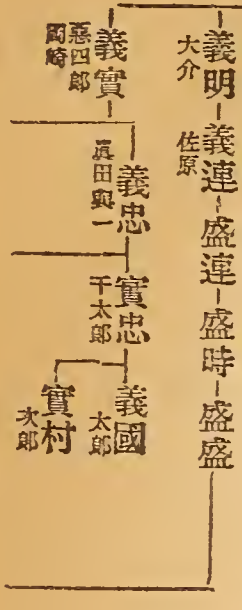 義明―義連―盛連―盛時―盛盛
大介
佐原
義實
惡四郎
岡崎
義忠
眞田與一
實忠
千太郎
義國
太郎
實村
次郎